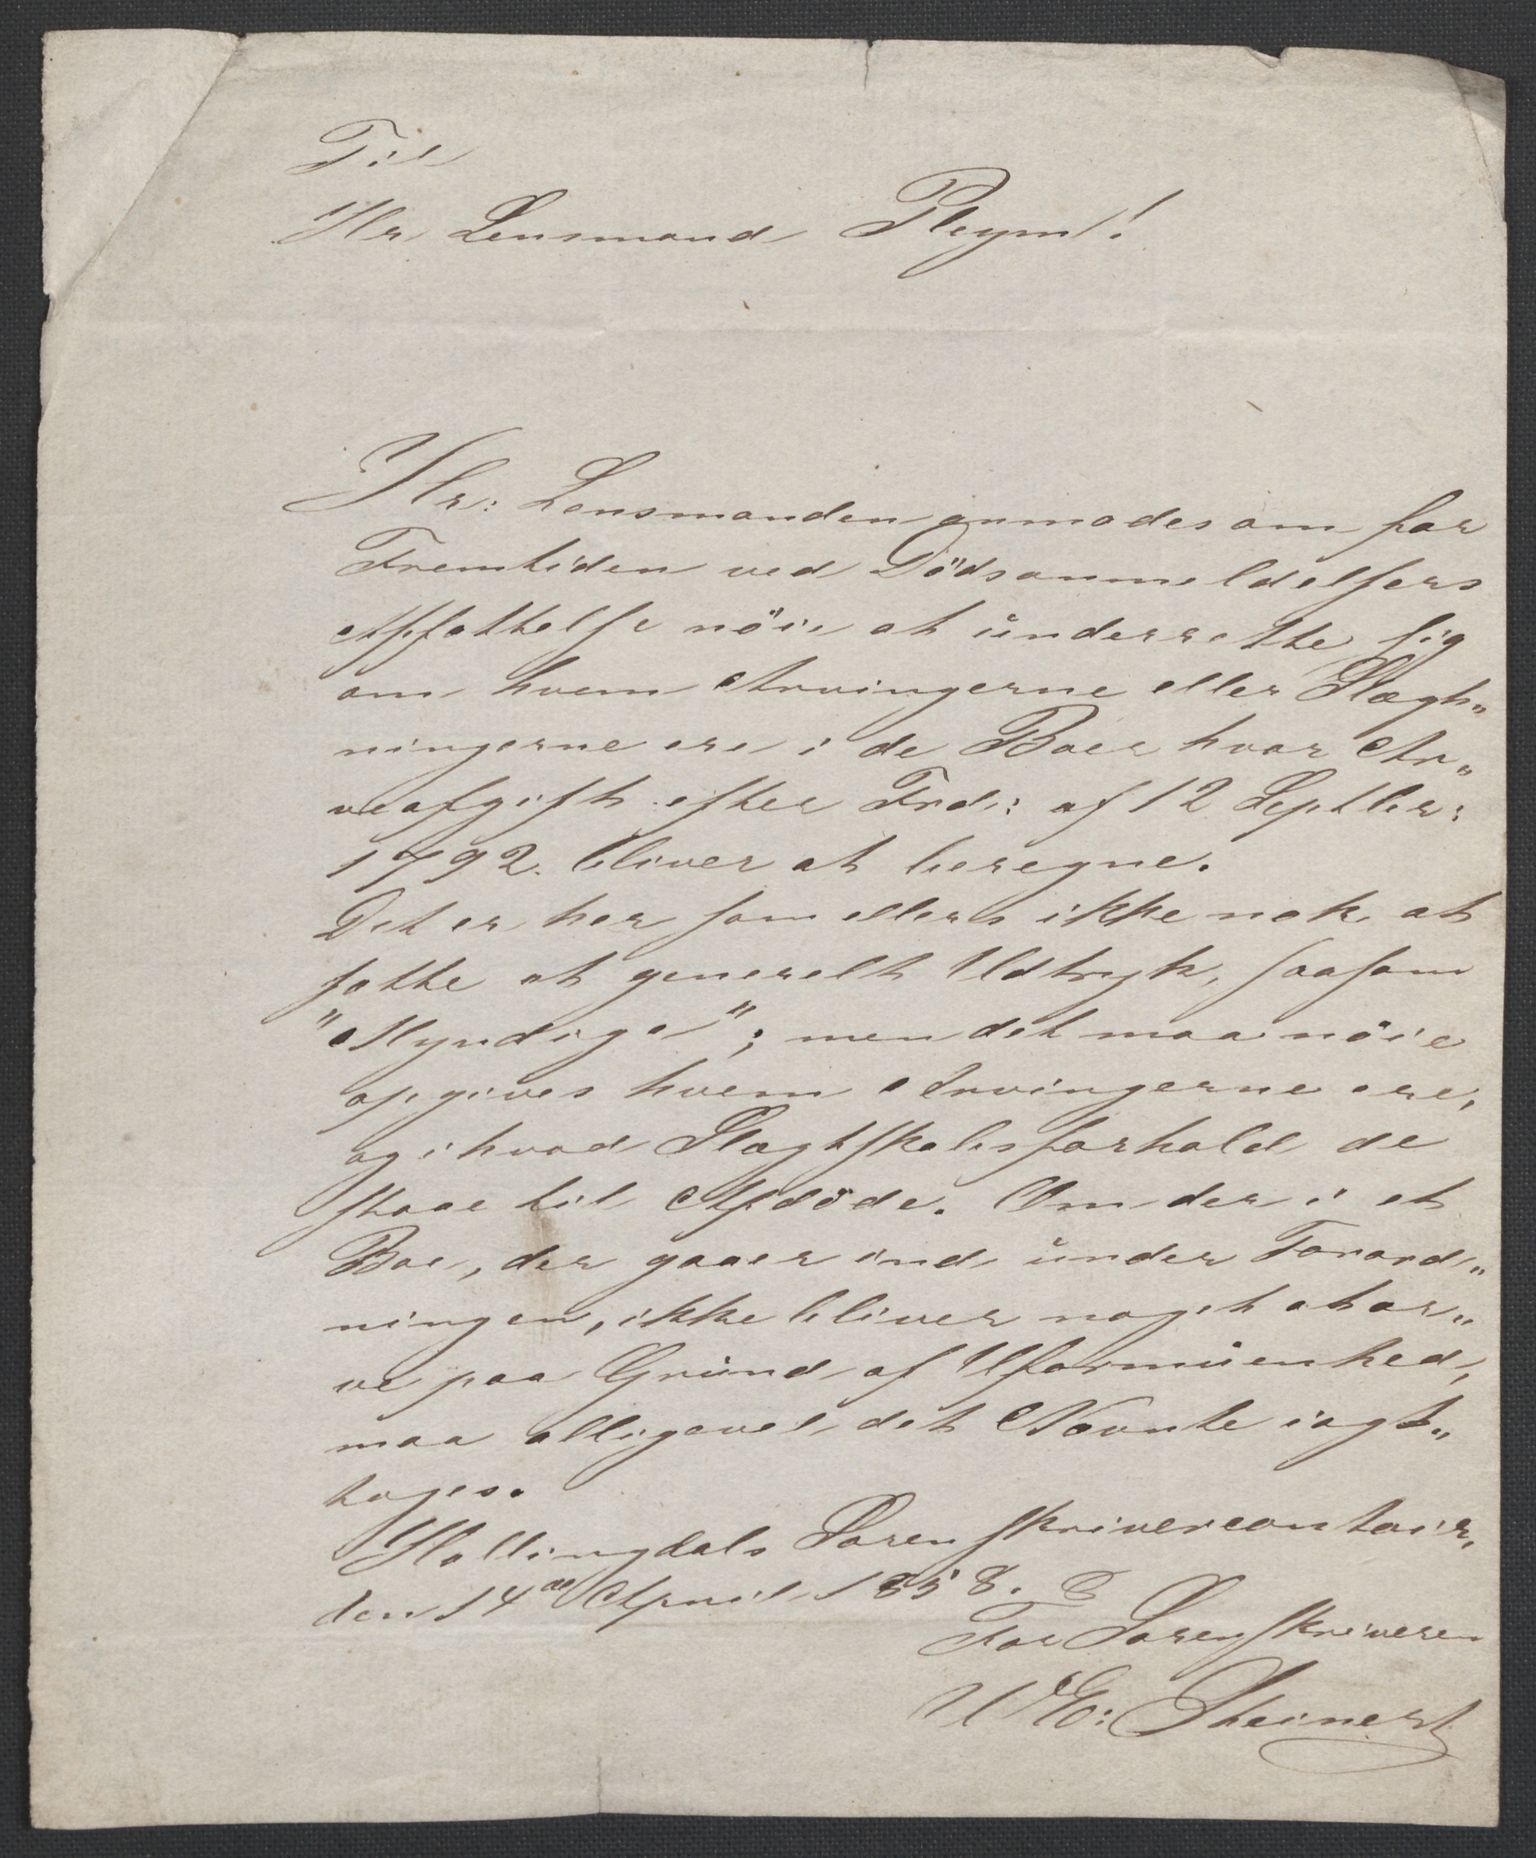 Til
Hr Lensmand Pleym!
Hr: Lensmanden anmodes om for
Fremtiden ved Dödsanmeldelsers
Affattelse nöie at underrette sig
om hvem Arvingerne eller Slægt„
ningerne ere i de Boer hvor Ar„
veafgift efter Frd: af 12 Septber:
1792. bliver at beregne.
Det er her som ellers ikke nok at
fatte et generelt Udtryk, saasom
"Myndige"; men det maa nöie
opgives hvem Arvingerne ere,
og i hvad Slægtskabsforhold de
staae til Afdöde. Om der i et
Boe, der gaaer ind under Forord„
ningen, ikke bliver noget at ar„
ve paa Grund af Uformuenhed,
maa alligevel det Nævnte iagt„
tages.
Hallingdals Sorenskrivercontoir,
den 14de April 1858.
For Sorenskriveren
Steinert